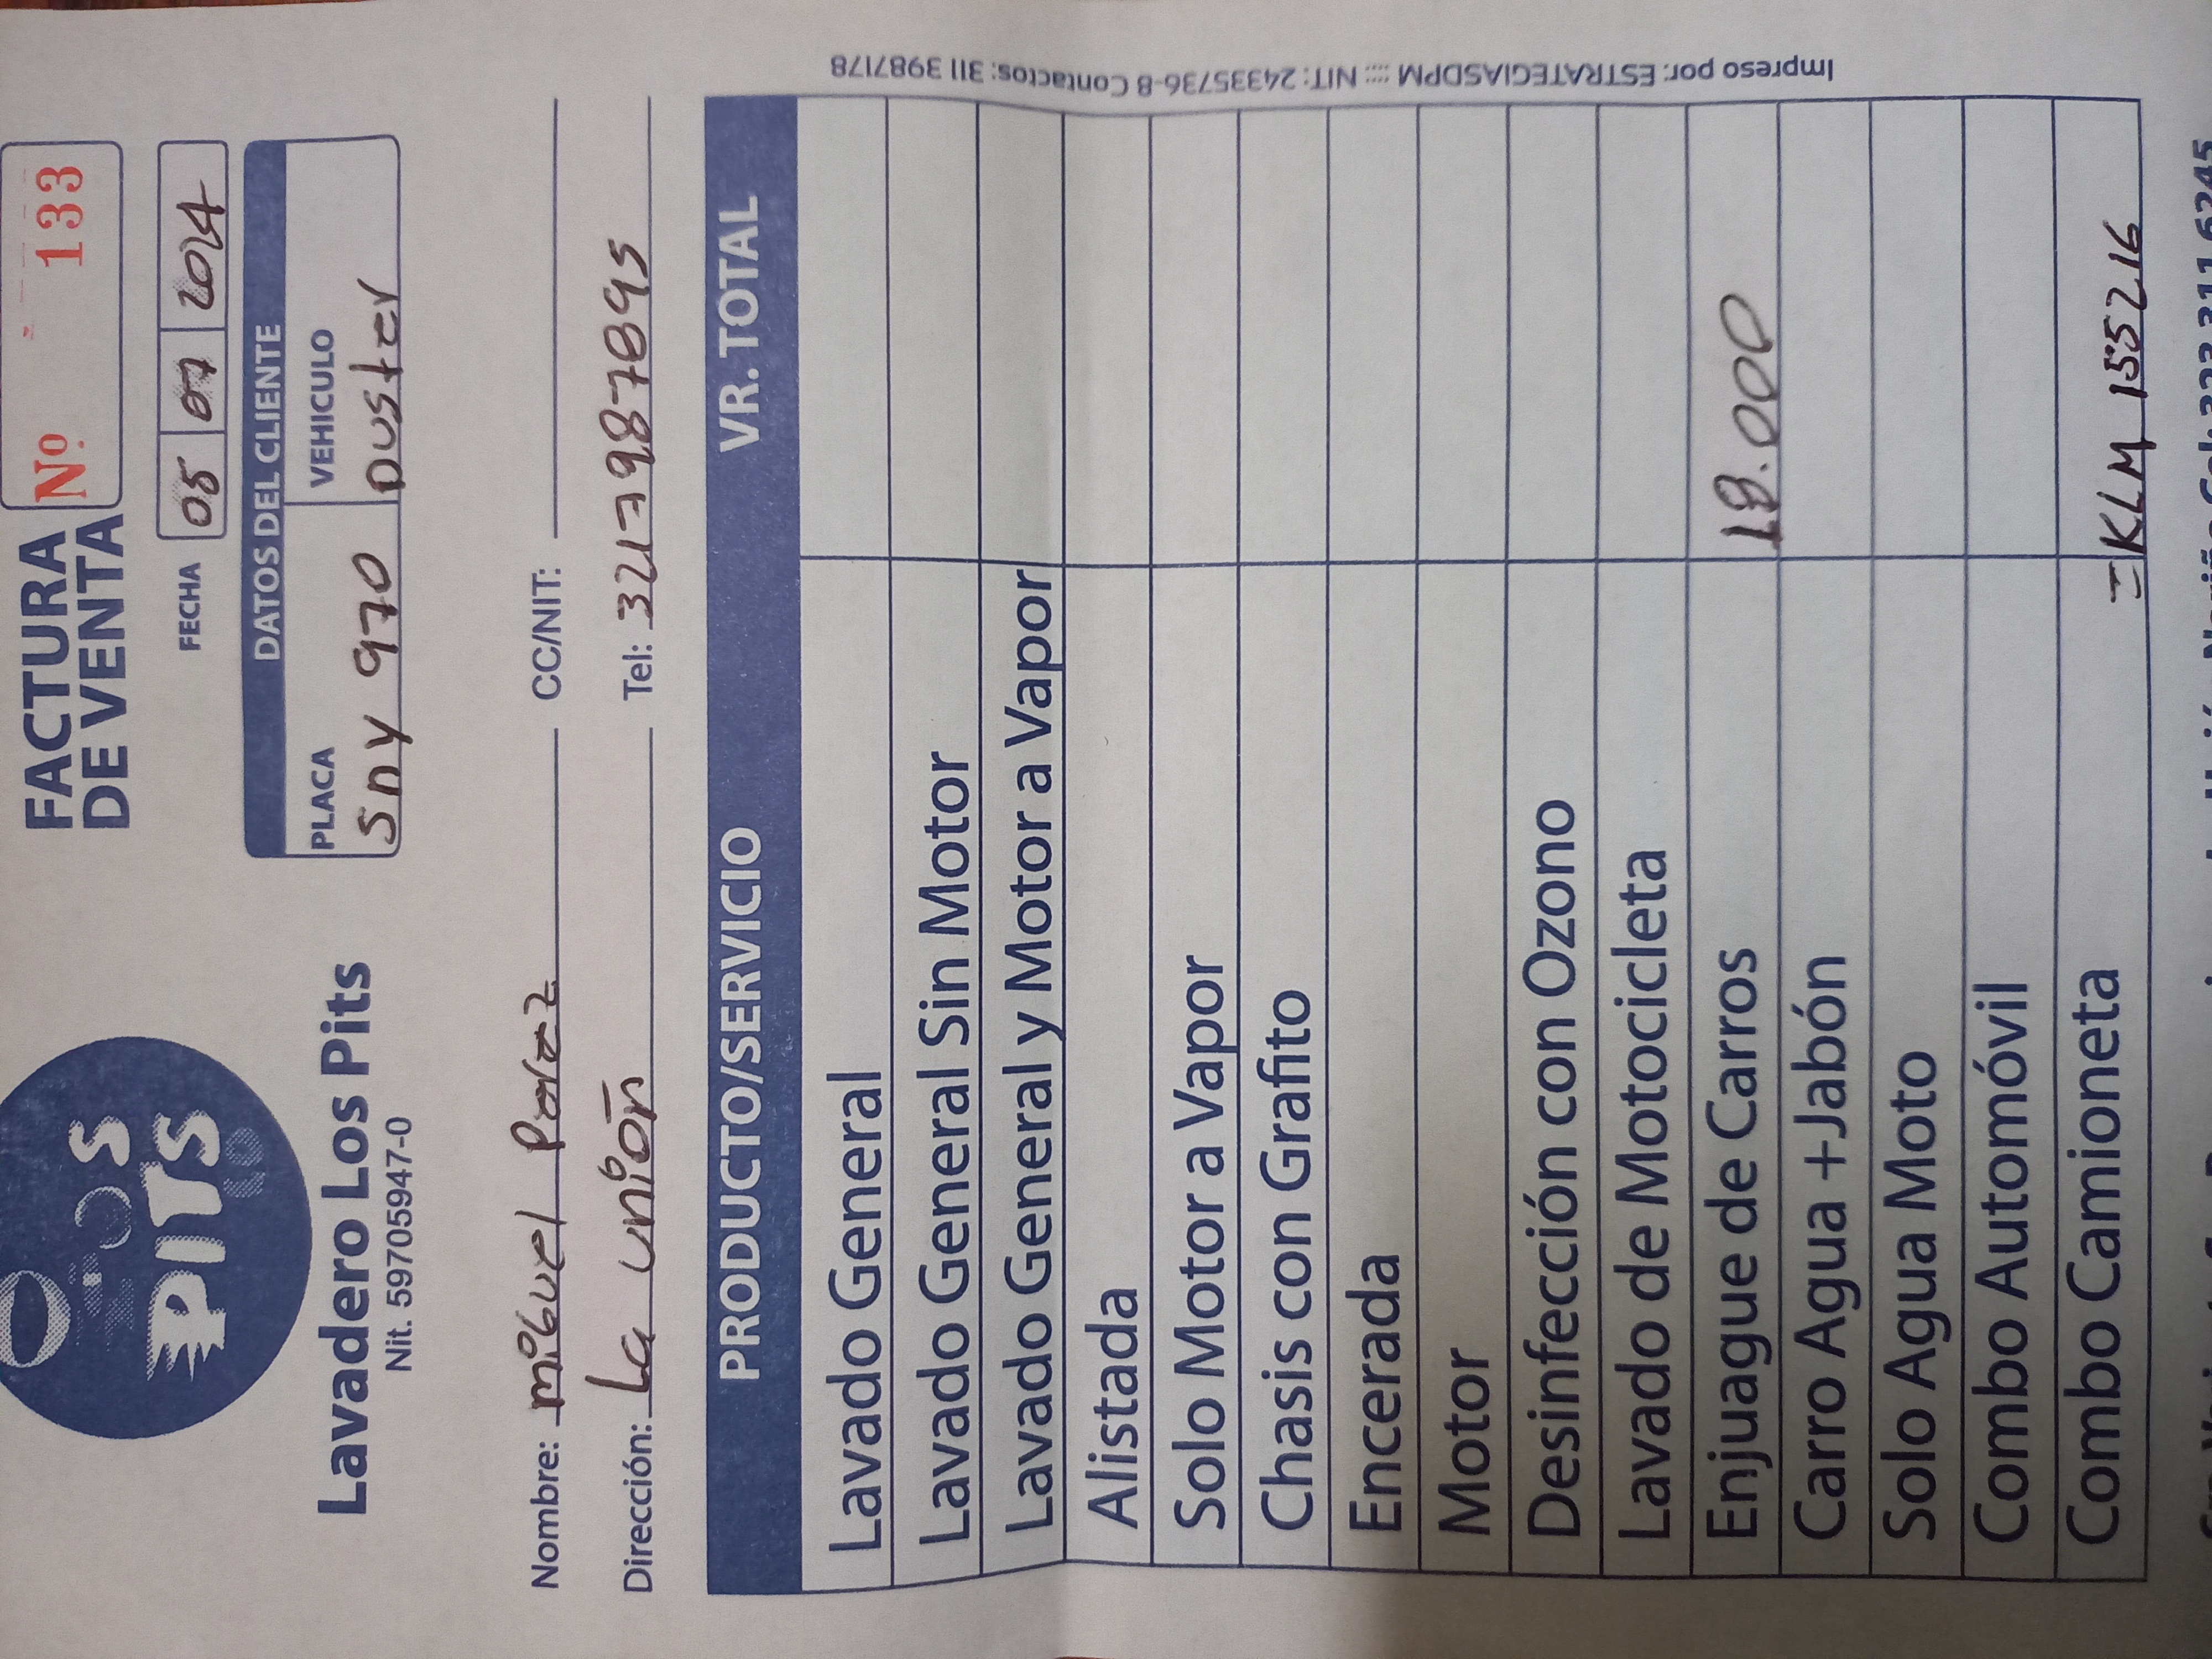 LOS
PITS
FACTURA
DE VENTA
Nº 133
FECHA 05 07 2024
Lavadero Los Pits
Nit. 59705947-0
DATOS DEL CLIENTE
PLACA VEHICULO
SNY 970 Duster
Nombre: miguel Paez CC/NIT:
Dirección: La unión Tel: 3217987895
PRODUCTO/SERVICIO VR. TOTAL
Lavado General
Lavado General Sin Motor
Lavado General y Motor a Vapor
Alistada
Solo Motor a Vapor
Chasis con Grafito
Encerada
Motor
Desinfección con Ozono
Lavado de Motocicleta
Enjuague de Carros 18.000
Carro Agua +Jabón
Solo Agua Moto
Combo Automóvil
Combo Camioneta = KLM 155216
Impreso por: ESTRATEGIASDPM :::: NIT: 24335736-8 Contactos: 311 3987178